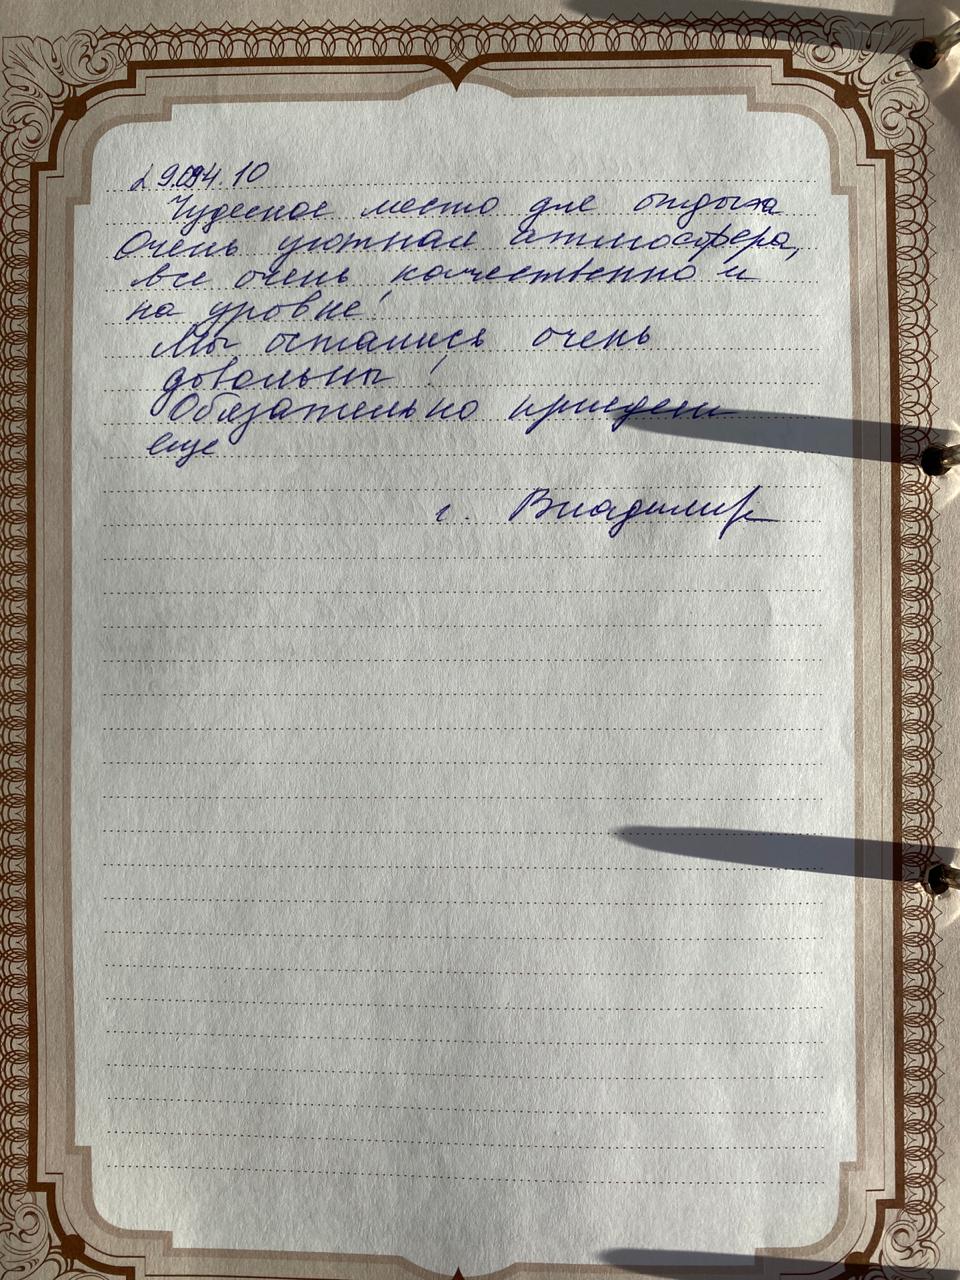 29.04.10
Чудесное место для отдыха
Очень уютная атмосфера,
все очень качественно и
на уровне!
Мы остались очень
довольны!
Обязательно приедем
еще
г. Владимир